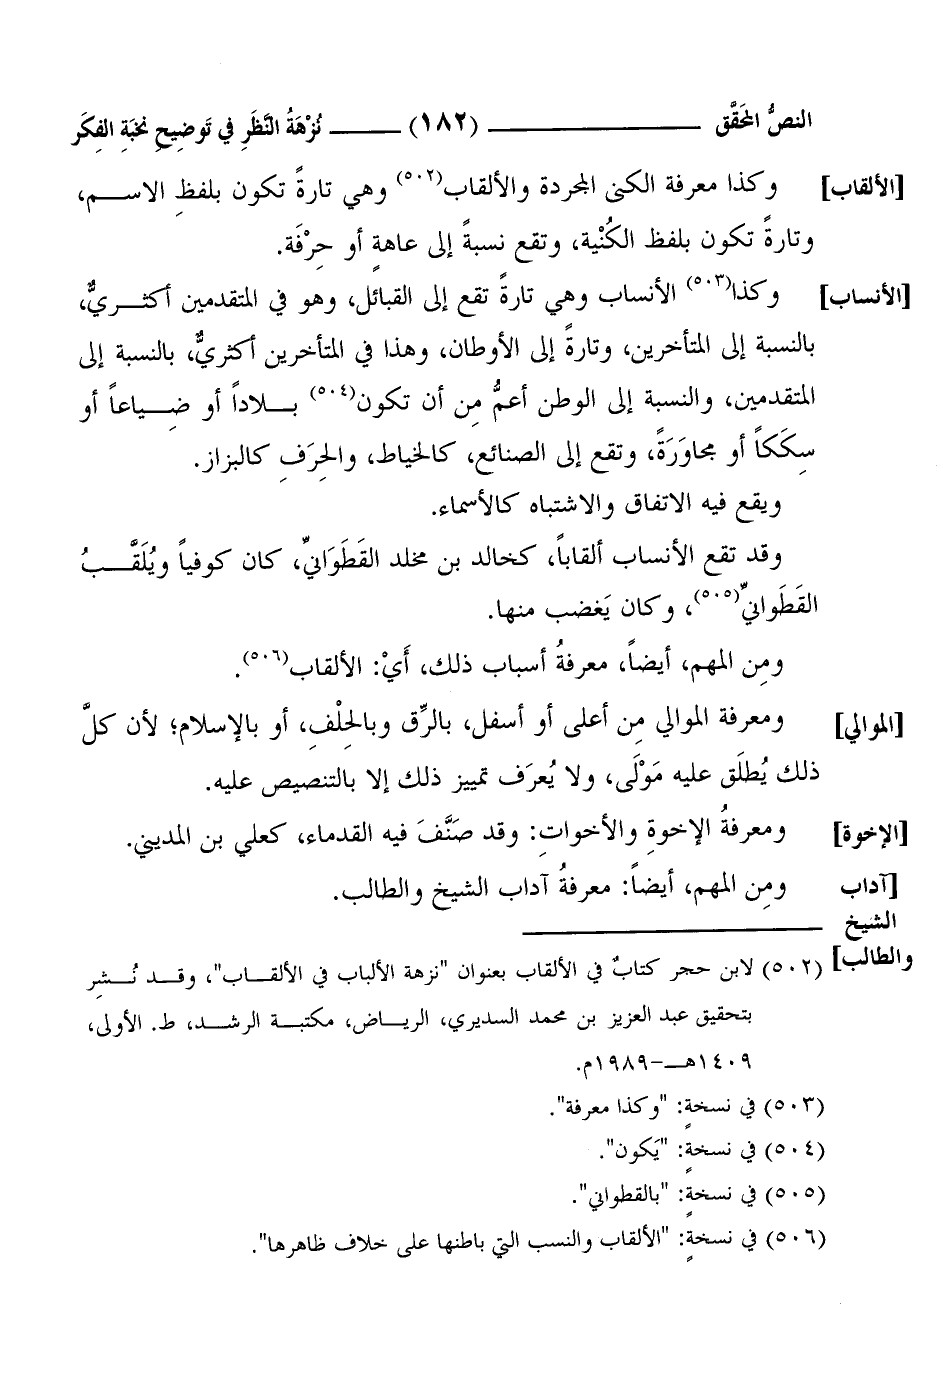 النصُّ المحَقَّق (١٨٢) نُزْهَةُ النَّظَرِ في تَوضِيحِ نخبَةِ الفِكَر
[الألقاب] وكذا معرفة الكنى المجردة والألقاب(٥٠٢) وهي تارةً تكون بلفظِ الاســم،
وتارةً تكون بلفظ الكُنْية، وتقع نسبةً إلى عاهةٍ أو حِرْفَة.
[الأنساب] وكذا(٥٠٣) الأنساب وهي تارةً تقع إلى القبائل، وهو في المتقدمين أكثــريٌّ،
بالنسبة إلى المتأخرين، وتارةً إلى الأوطان، وهذا في المتأخرين أكثريٌّ، بالنسبة إلى
المتقدمين، والنسبة إلى الوطن أعمُّ مِن أن تكون(٥٠٤) بــلاداً أو ضِيــاعاً أو
سِكَكاً أو مجاوَرَةً، وتقع إلى الصنائع، كالخياط، والحِرَفِ كالبزاز.
ويقع فيه الاتفاق والاشتباه كالأسماء.
وقد تقع الأنساب ألقاباً، كخالد بن مخلد القَطَوَانيِّ، كان كوفياً ويُلَقَّــبُ
القَطَوانيِّ(٥٠٥)، وكان يَغضب منها.
ومِن المهم، أيضاً، معرفةُ أسباب ذلك، أَيْ: الألقاب(٥٠٦).
[الموالي] ومعرفة الموالي مِن أعلى أو أسفل، بالرِّق وبالحِلْفِ، أو بالإسلام؛ لأن كلَّ
ذلك يُطلَق عليه مَوْلَى، ولا يُعرَف تمييز ذلك إلا بالتنصيص عليه.
[الإخوة] ومعرفةُ الإخوةِ والأخواتِ: وقد صَنَّفَ فيه القدماء، كعلي بن المديني.
[آداب الشيخ والطالب] ومِن المهم، أيضاً: معرفةُ آداب الشيخ والطالب.
(٥٠٢) لابن حجر كتابٌ في الألقاب بعنوان "نزهة الألباب في الألقــاب"، وقــد نُــشِر
بتحقيق عبد العزيز بن محمد السديري، الريــاض، مكتبــة الرشــد، ط. الأولى،
١٤٠٩هــ-١٩٨٩م.
(٥٠٣) في نسخةٍ: "وكذا معرفة".
(٥٠٤) في نسخةٍ: "يَكون".
(٥٠٥) في نسخةٍ: "بالقطواني".
(٥٠٦) في نسخةٍ: "الألقاب والنسب التي باطنها على خلاف ظاهرها".